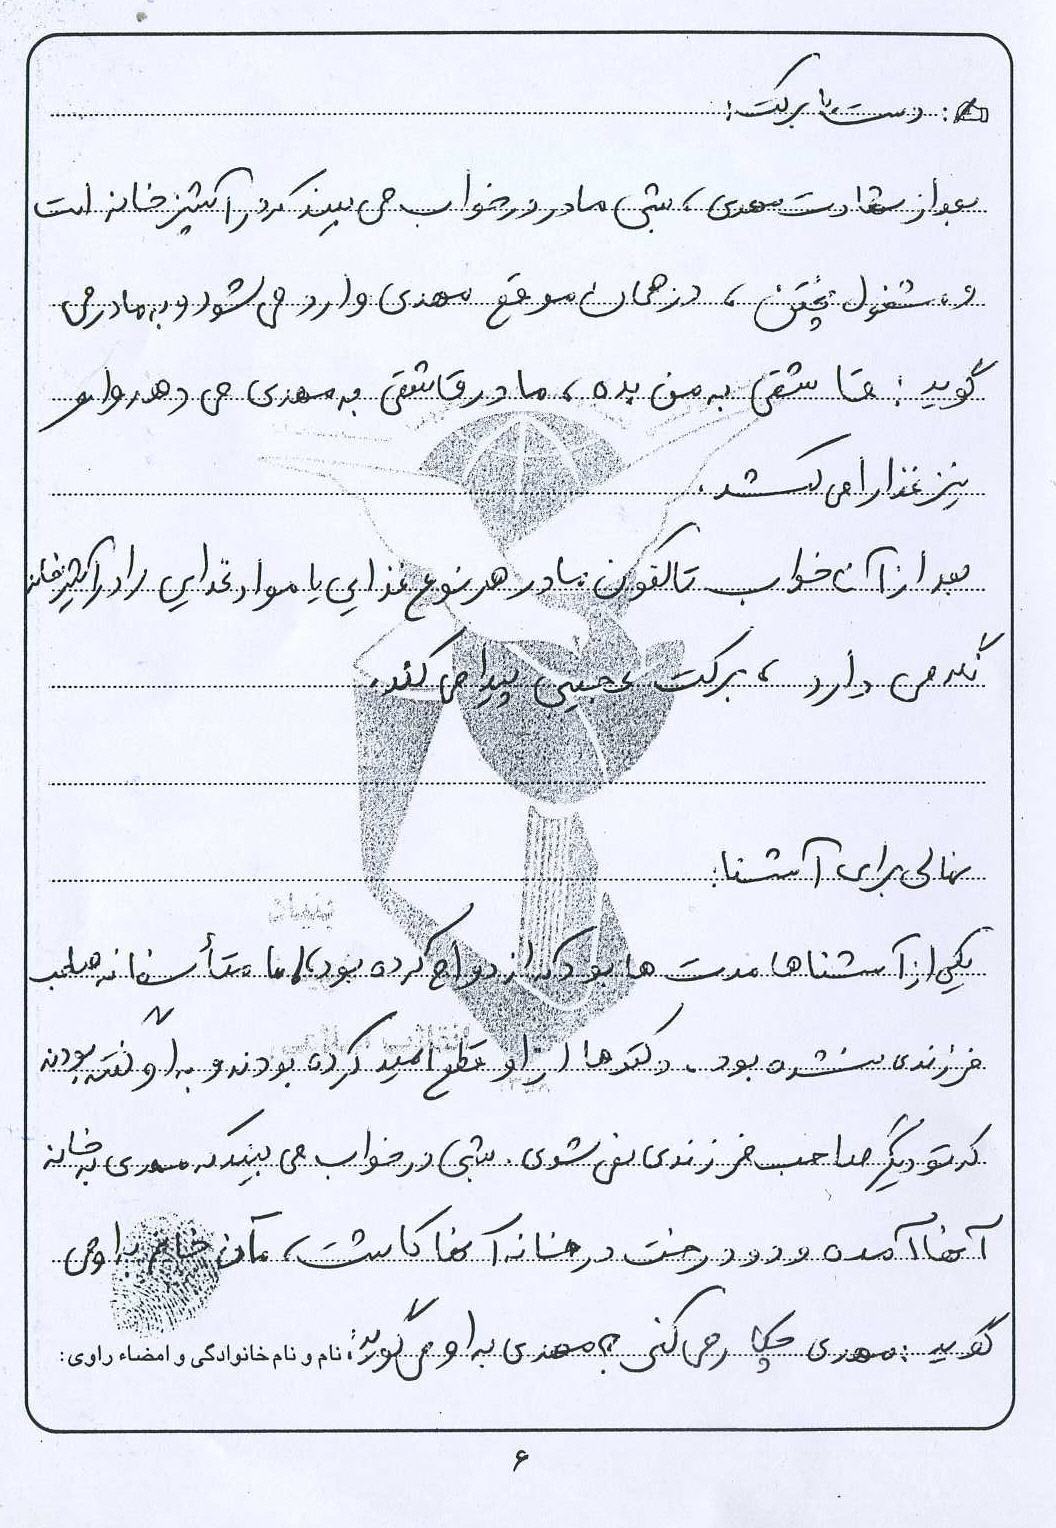 : دست با برکت:
بعد از شهادت مهدی ، شبی مادر در خواب می بیند که در آشپزخانه است
و مشغول پختن ، در همان موقع مهدی وارد می شود و به مادر می
گوید : قاشقی به من بده ، مادر قاشقی به مهدی می دهد و او
نیز غذا را می کشد .
بعد از آن خواب تاکنون مادر هر نوع غذایی یا مواد غذایی را در آشپزخانه
نگه می دارد ، برکت عجیبی پیدا می کند.
نهالی برای آشنا:
یکی از آشناها مدت ها بود که ازدواج کرده بود، اما متأسفانه صاحب
فرزندی نشده بود . دکترها از او قطع امید کرده بودند و به او گفته بودند
که تو دیگر صاحب فرزندی نمی شوی . شبی در خواب می بیند که مهدی به خانه
آنها آمده و دو درخت در خانه آنها کاشت ، آن خانم به او می
گوید : مهدی چکار می کنی ؟ مهدی به او می گوید:
نام و نام خانوادگی و امضاء راوی:
بنیاد
۶